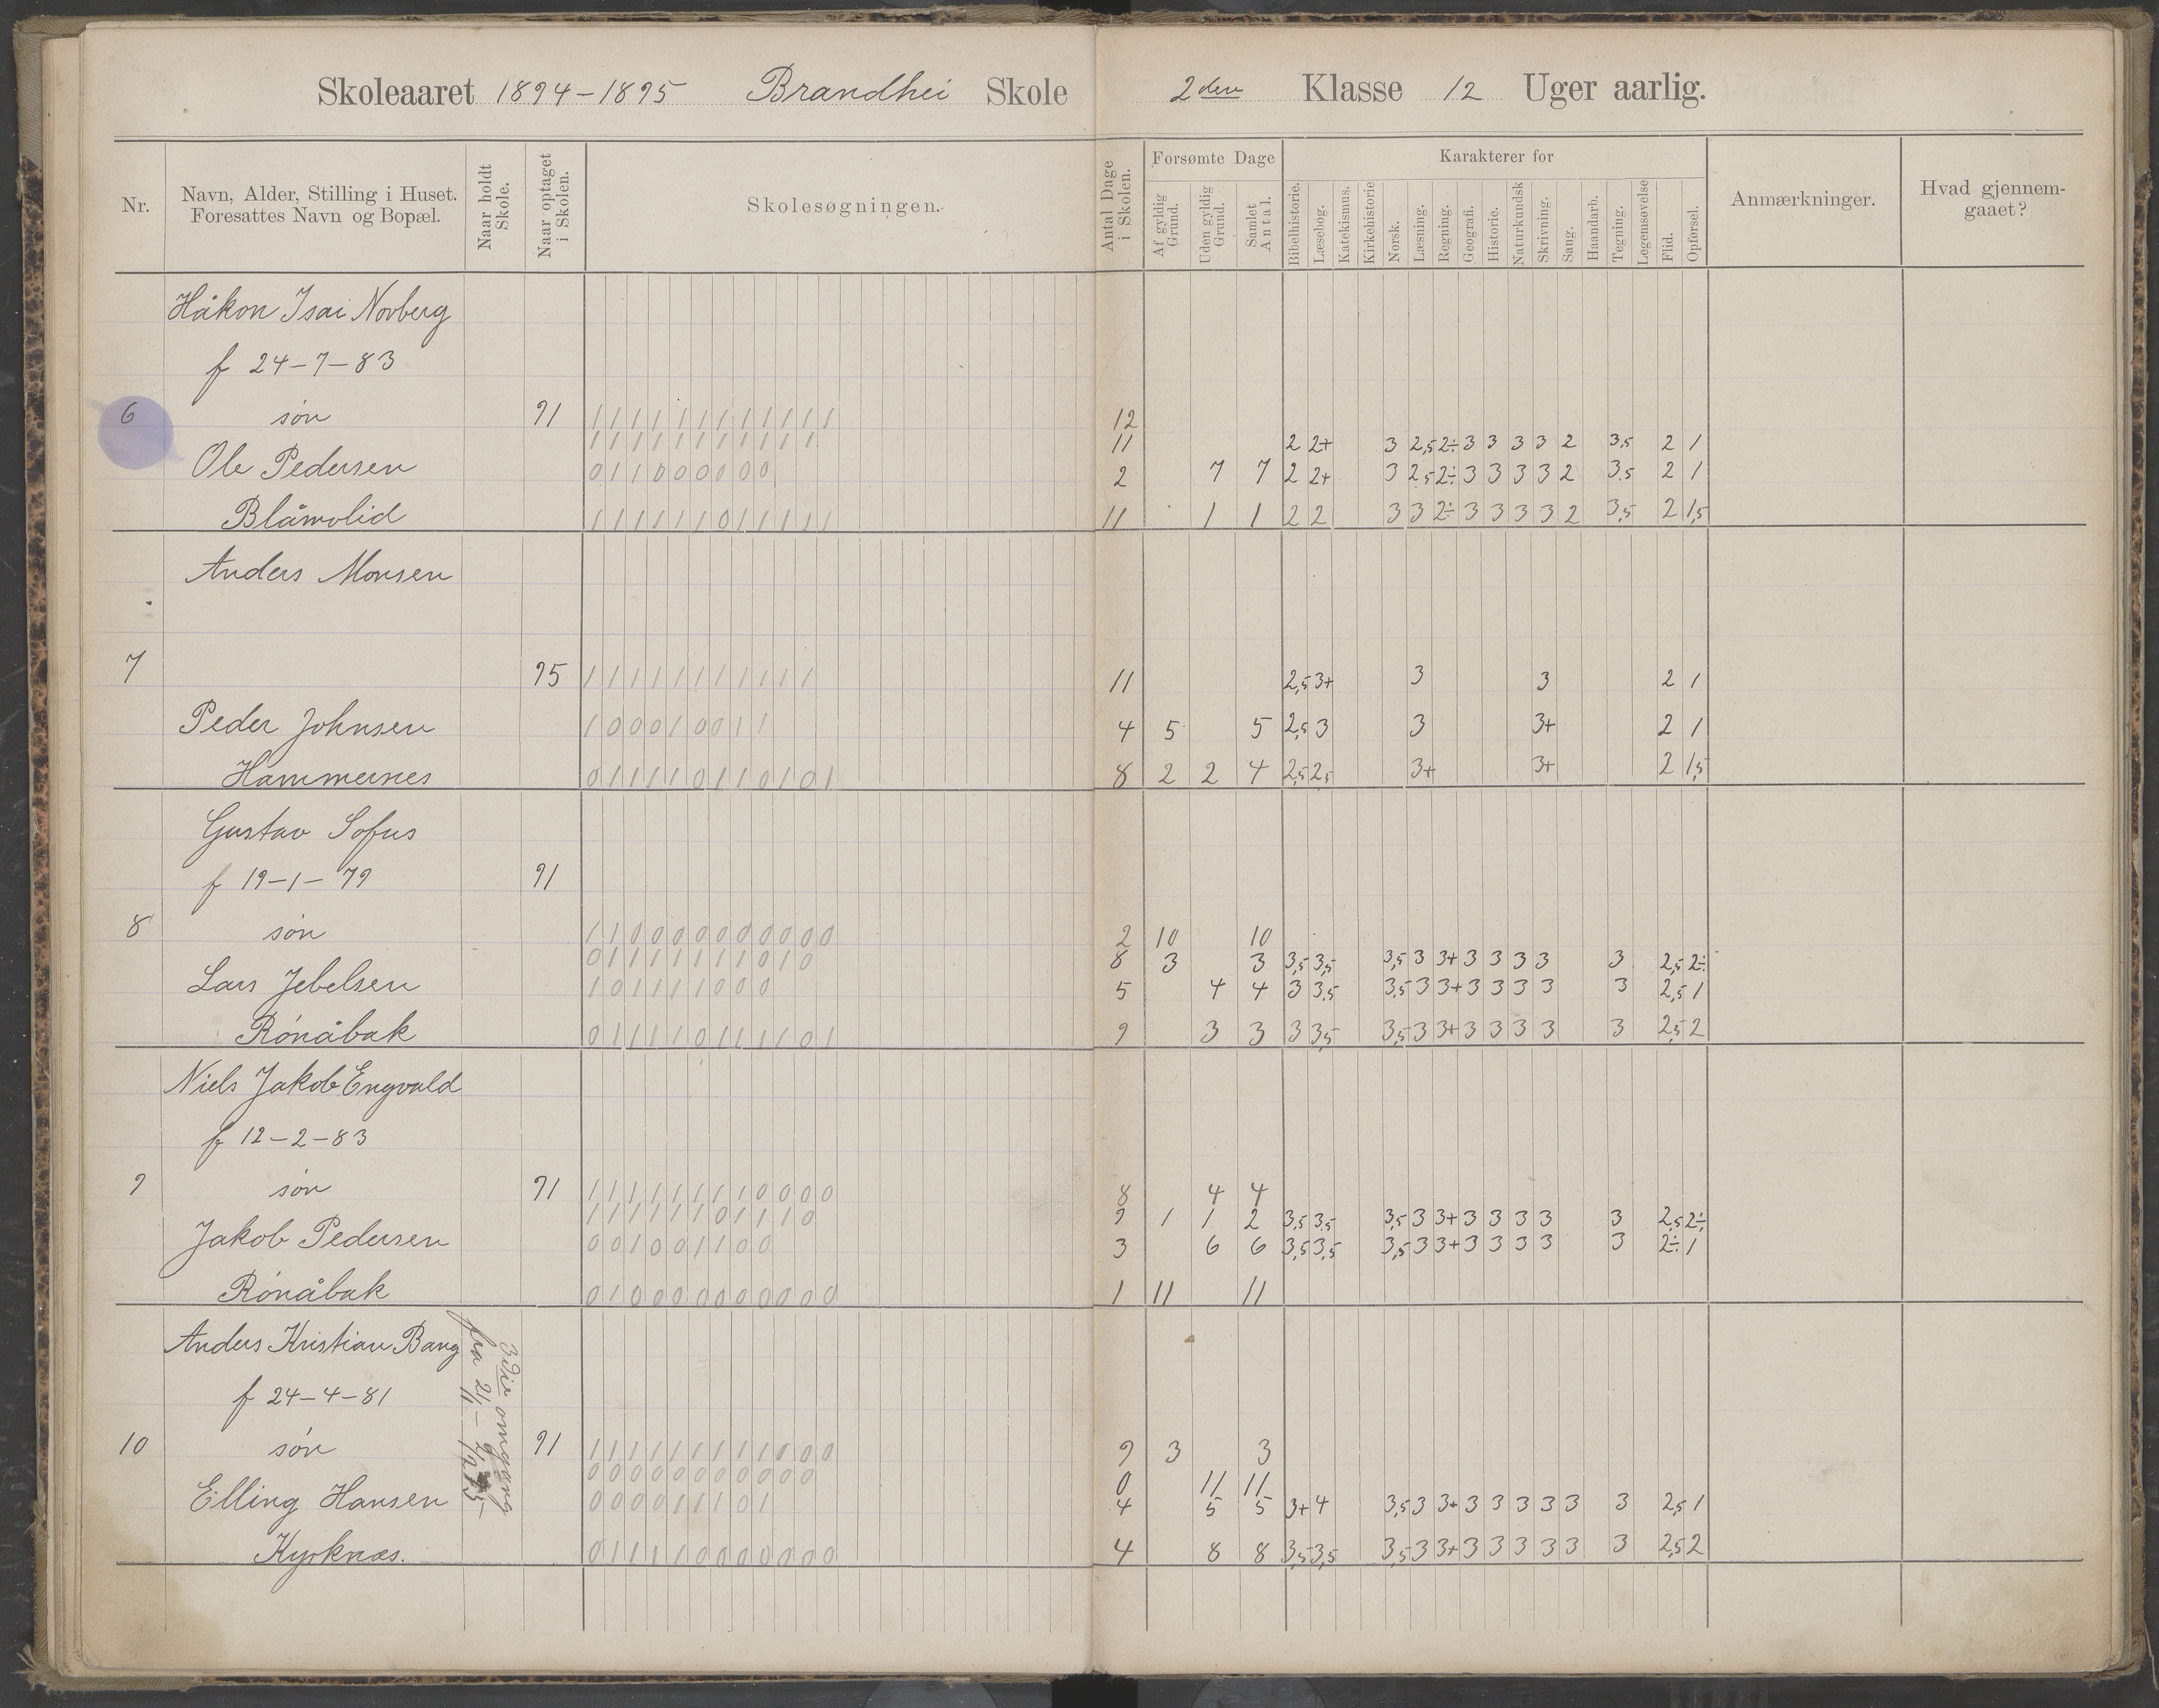 Skoleaaret 1894-1895 Brandhei Skole 2den Klasse 12 Uger aarlig.
Nr.
Navn, Alder, Stilling i Huset. Foresattes Navn og Bopæl.
Naar holdt Skole.
Naar optaget i Skolen.
Skolesøgningen.
Antal Dage i Skolen.
Forsømte Dage
Af gyldig Grund.
Uden gyldig Grund.
Samlet Antal.
Karakterer for
Bibelhistorie.
Læsebog.
Katekismus.
Kirkehistorie
Norsk.
Læsning.
Regning.
Geografi.
Historie.
Naturkundsk
Skrivning.
Sang.
Haandarb.
Tegning.
Legemsøvelse
Flid.
Opførsel.
Anmærkninger.
Hvad gjennemgaaet?
Håkon Isai Norberg
f 24-7-83
6 søn 91 1 1 1 1 1 1 1 1 1 1 1 1 12
1 1 1 1 1 1 1 1 1 1 1 11 2 2+ 3 2,5 2÷ 3 3 3 3 2 3,5 2 1
Ole Pedersen 0 1 1 0 0 0 0 0 0 2 7 7 2 2+ 3 2,5 2÷ 3 3 3 3 2 3,5 2 1
Blåmolid 1 1 1 1 1 1 0 1 1 1 1 1 11 1 1 2 2 3 3 2÷ 3 3 3 3 2 3,5 2 1,5
Anders Monsen
7 95 1 1 1 1 1 1 1 1 1 1 1 11 2,5 3+ 3 3 2 1
Peder Johnsen 1 0 0 0 1 0 0 1 1 4 5 5 2,5 3 3 3+ 2 1
Hammernes 0 1 1 1 1 0 1 1 0 1 0 1 8 2 2 4 2,5 2,5 3+ 3+ 2 1,5
Gustav Sofus
f 19-1-79 91
8 søn 1 1 0 0 0 0 0 0 0 0 0 0 2 10 10
0 1 1 1 1 1 1 1 0 1 0 8 3 3 3,5 3,5 3,5 3 3+ 3 3 3 3 3 2,5 2÷
Lars Jebelsen 1 0 1 1 1 1 0 0 0 5 4 4 3 3,5 3,5 3 3+ 3 3 3 3 3 2,5 1
Rönåbak 0 1 1 1 1 0 1 1 1 1 0 1 9 3 3 3 3,5 3,5 3 3+ 3 3 3 3 3 2,5 2
Niels Jakob Engvald
f 12-2-83
9 søn 91 1 1 1 1 1 1 1 1 0 0 0 0 8 4 4
1 1 1 1 1 1 0 1 1 1 0 9 1 1 2 3,5 3,5 3,5 3 3+ 3 3 3 3 3 2,5 2÷
Jakob Pedersen 0 0 1 0 0 1 1 0 0 3 6 6 3,5 3,5 3,5 3 3+ 3 3 3 3 3 2÷ 1
Rönåbak 0 1 0 0 0 0 0 0 0 0 0 0 1 11 11
Anders Kristian Bang
f 24-4-81
10 søn 91 1 1 1 1 1 1 1 1 1 0 0 0 9 3 3
0 0 0 0 0 0 0 0 0 0 0 0 11 11
Elling Hansen 0 0 0 0 1 1 1 0 1 4 5 5 3+ 4 3,5 3 3+ 3 3 3 3 3 3 2,5 1
Kyrknæs. 0 1 1 1 1 0 0 0 0 0 0 0 4 8 8 3,5 3,5 3,5 3 3+ 3 3 3 3 3 3 2,5 2
3die omgang
fra